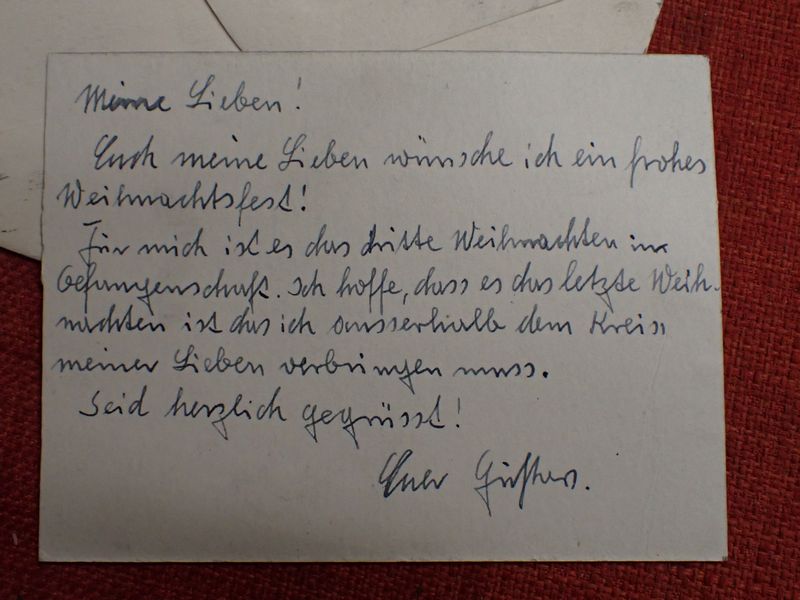 Meine Lieben!
Euch meine Lieben wünsche ich ein frohes
Weihnachtsfest!
Für mich ist es das dritte Weihnachten in
Gefangenschaft. Ich hoffe, dass es das letzte Weih-
nachten ist das ich ausserhalb dem Kreis
meiner Lieben verbringen muss.
Seid herzlich gegrüsst!
Euer